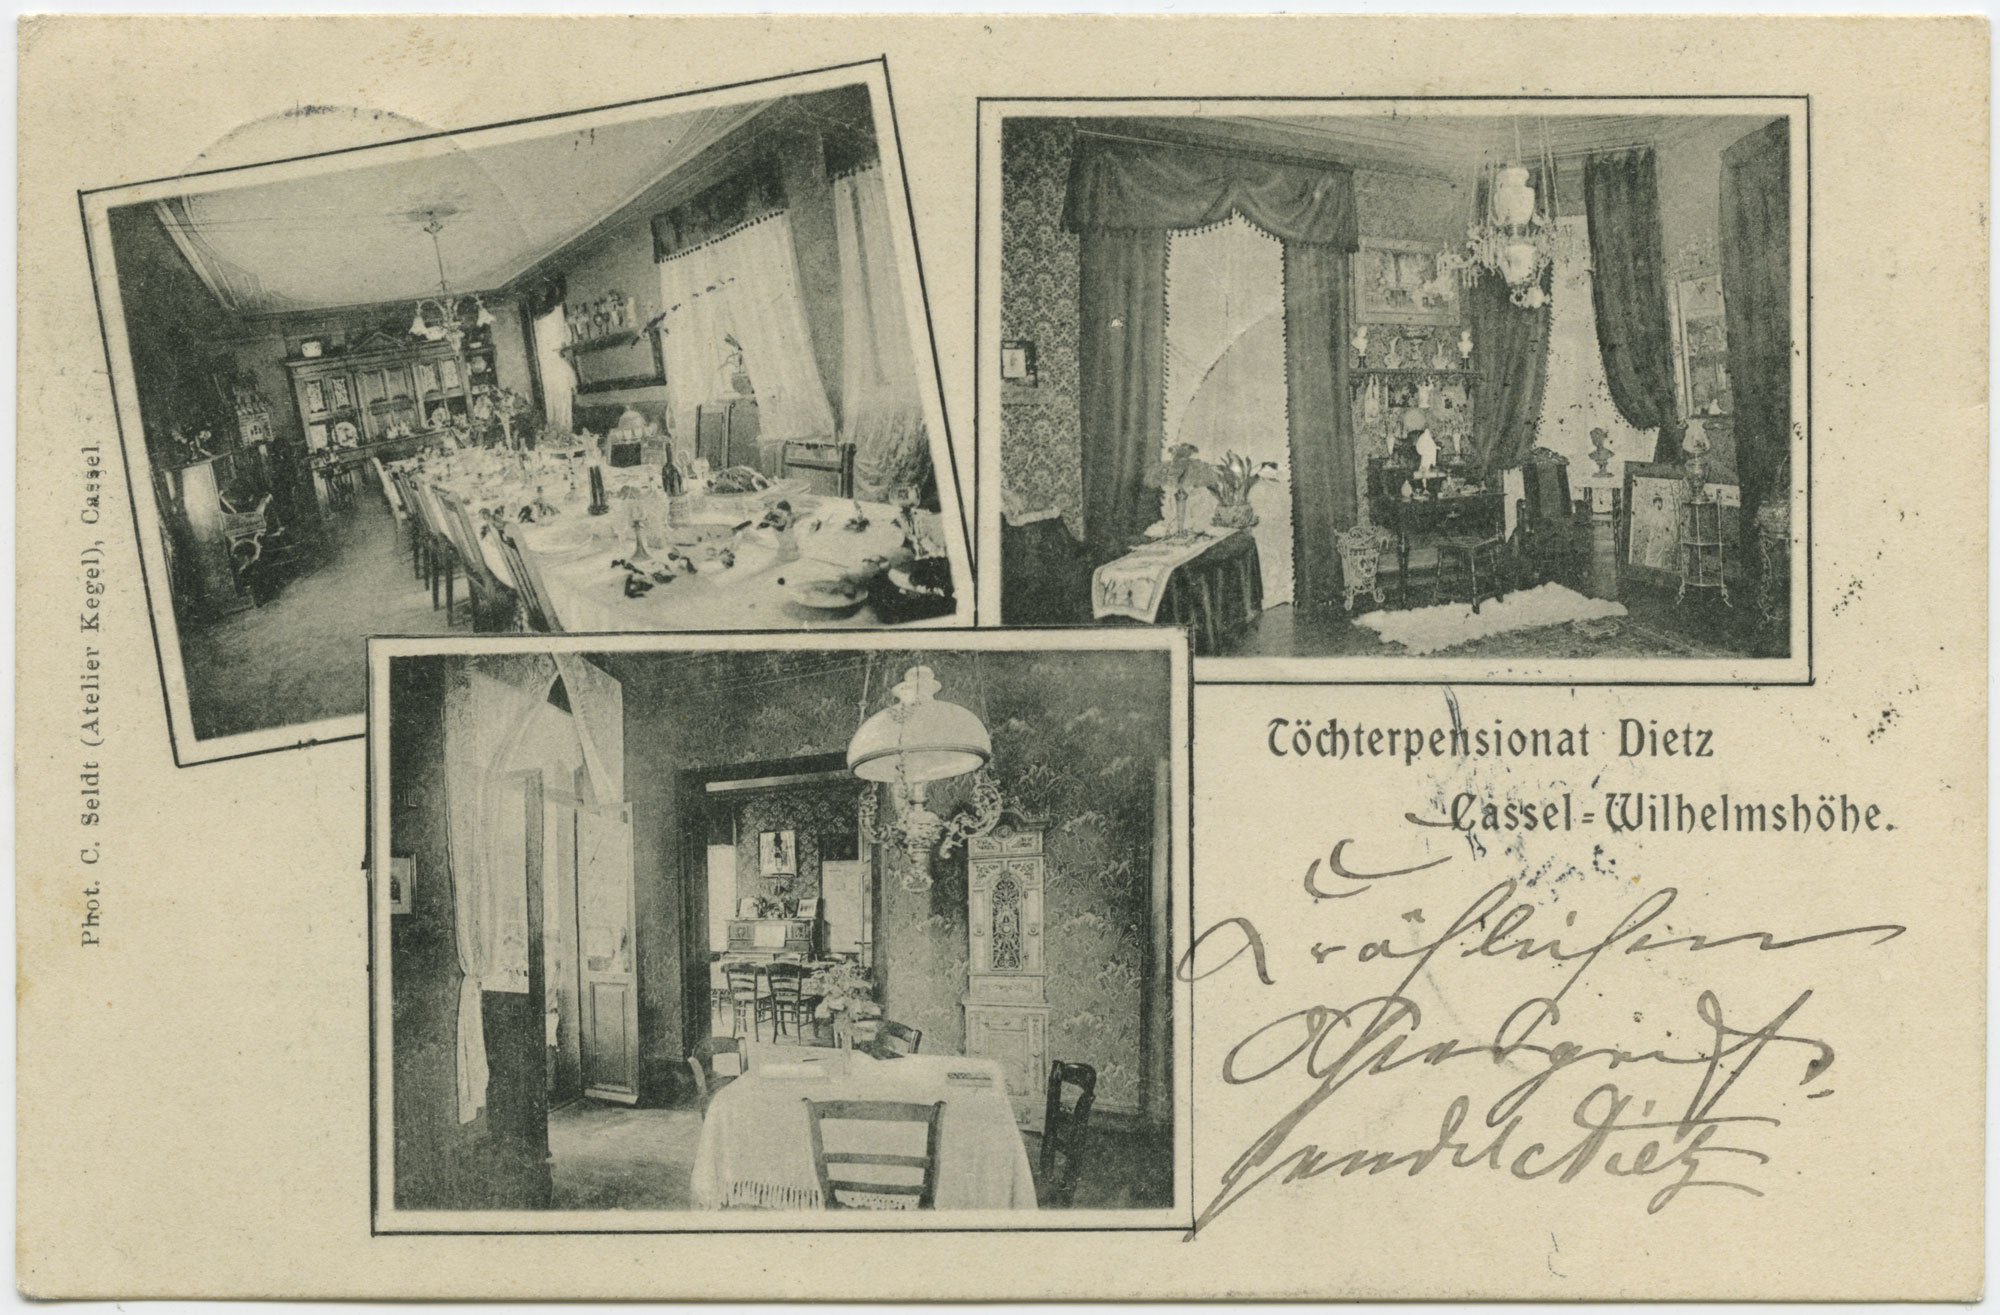 Phot. C. Seldt (Atelier Kegel), Cassel.
Töchterpensionat Dietz
Cassel-Wilhelmshöhe.
Fröhlichen
Pfingstgruß
sendet Dietz